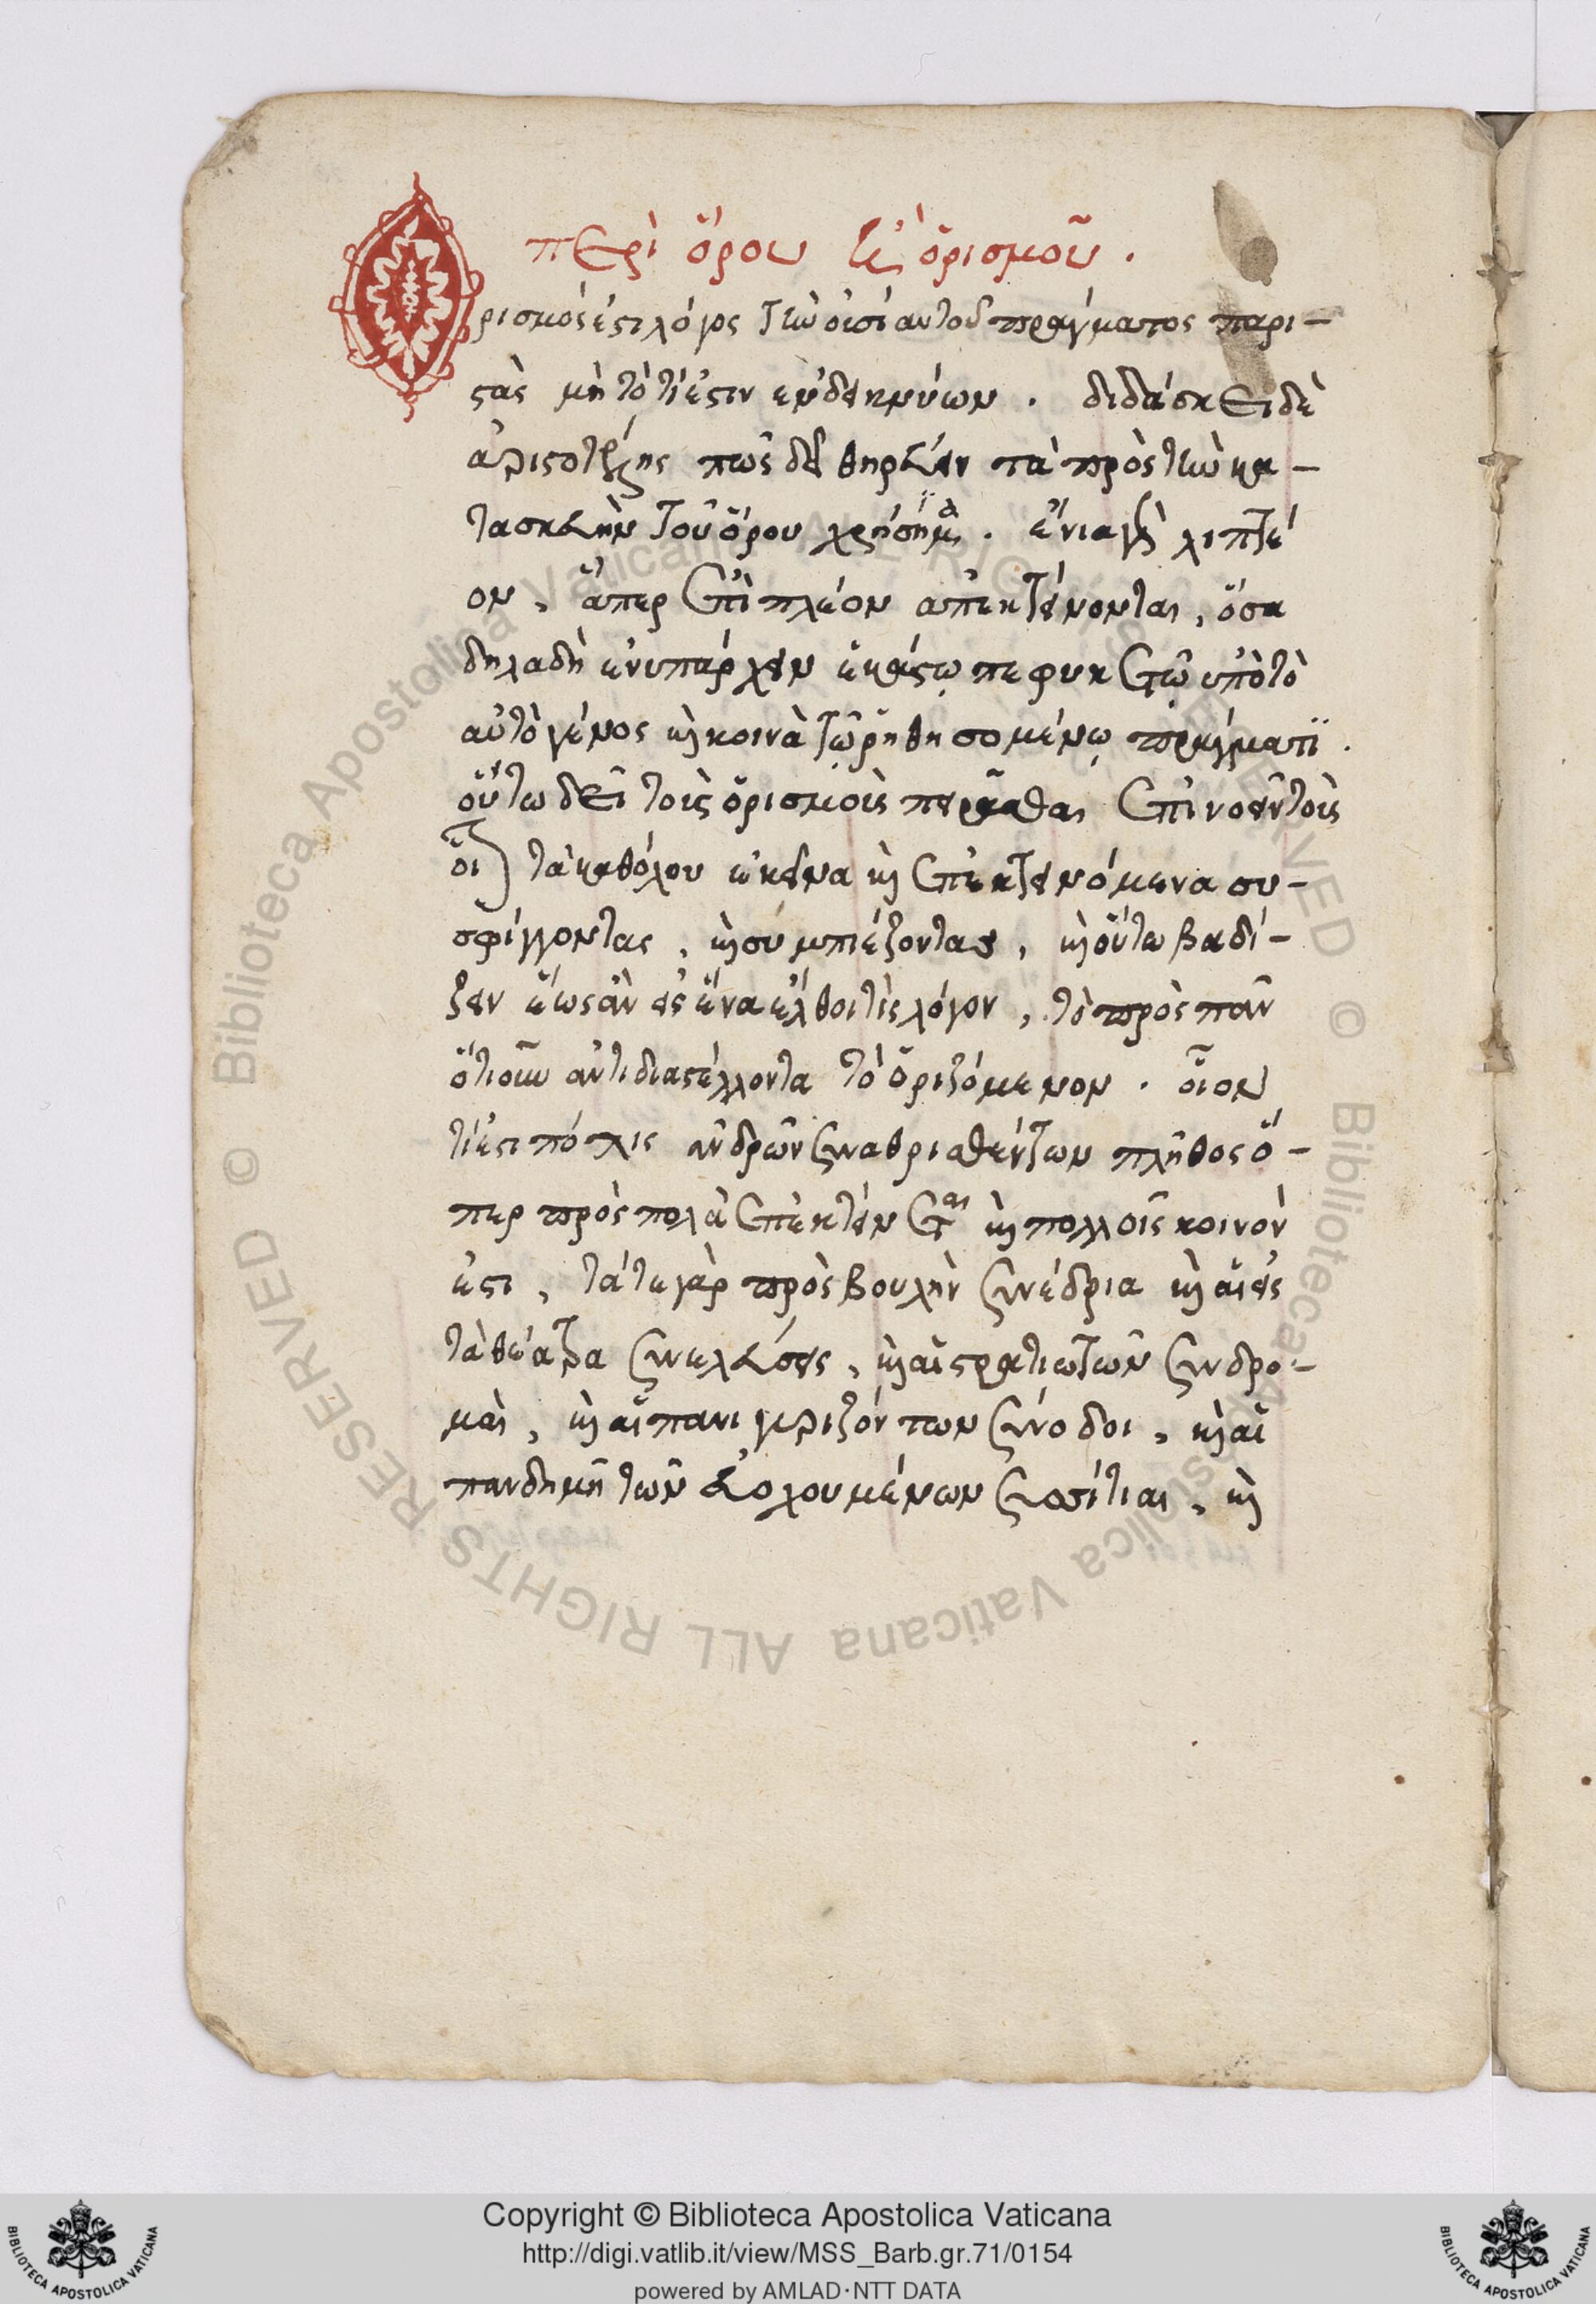 περὶ ὅρου καὶ ὁρισμοῦ .
Ὁρισμός ἐστι λόγος τὴν οὐσίαν τοῦ πράγματος παρι-
στὰς μὴ τὸ τί ἐστιν ἐνδεικνύων . διδάσκει δὲ
ἀριστοτέλης πῶς δεῖ θηρεύειν τὰ πρὸς τὴν κα-
τασκευὴν τοῦ ὅρου χρήσιμα . ἔνια γὰρ λιπτέ
ον , ἅπερ ἐπὶ πλέον ἀπεκτείνονται , ὅσα
δηλαδὴ ἐνυπάρχειν ἑκάστω πέφυκε τῶ ὑπὸ τὸ
αὐτὸ γένος καὶ κοινὰ τῶ ῥηθησομένω πράγματι .
οὕτω δεῖ τοὺς ὁρισμοὺς πειρᾶσθαι ἐπινοεῖν τοὺς
τὰ καθόλου ἐκεῖνα καὶ ἐπεκτεινόμενα συ-
σφίγγοντας , καὶ συμπιέζοντας , καὶ οὕτω βαδί-
ζειν ἕως ἂν εἰς ἕνα ἔλθοι τὶς λόγον , τὸ πρὸς πᾶν
ὁτιοῦν ἀντιδιαστέλλοντα τὸ ὁριζόμενον . οἷον
τί ἐστι πόλις ἀνδρῶν συναθροισθέντων πλῆθος ὅ-
περ πρὸς πολὰ ἐπεκτείνεται καὶ πολλοῖς κοινόν
ἐστι , τά τε γὰρ πρὸς βουλὴν συνέδρια καὶ αἱ εἰς
τὰ θέατρα συνελεύσεις , καὶ αἱ στρατιωτῶν συνδρο-
μαὶ , καὶ αἱ πανιγυριζόντων σύνοδοι , καὶ αἱ
πανδημεῖ τῶν εὐωχουμένων συσσίτιαι , καὶ
Copyright © Biblioteca Apostolica Vaticana
http://digi.vatlib.it/view/MSS_Barb.gr.71/0154
powered by AMLAD·NTT DATA
BIBLIOTECA APOSTOLICA VATICANA
BIBLIOTECA APOSTOLICA VATICANA
© Biblioteca Apostolica Vaticana ALL RIGHTS RESERVED © Biblioteca Apostolica Vaticana ALL RIGHTS RESERVED